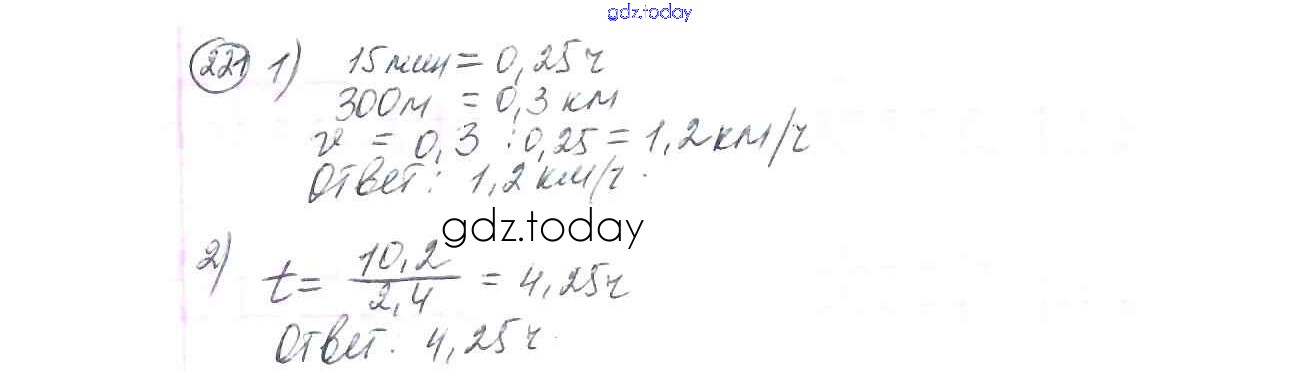 gdz.today
221 1) 15мин = 0,25ч
300м = 0,3 км
v = 0,3 : 0,25 = 1,2км/ч
Ответ: 1,2км/ч.
gdz.today
2) t = 10,2/2,4 = 4,25ч
Ответ: 4,25ч.